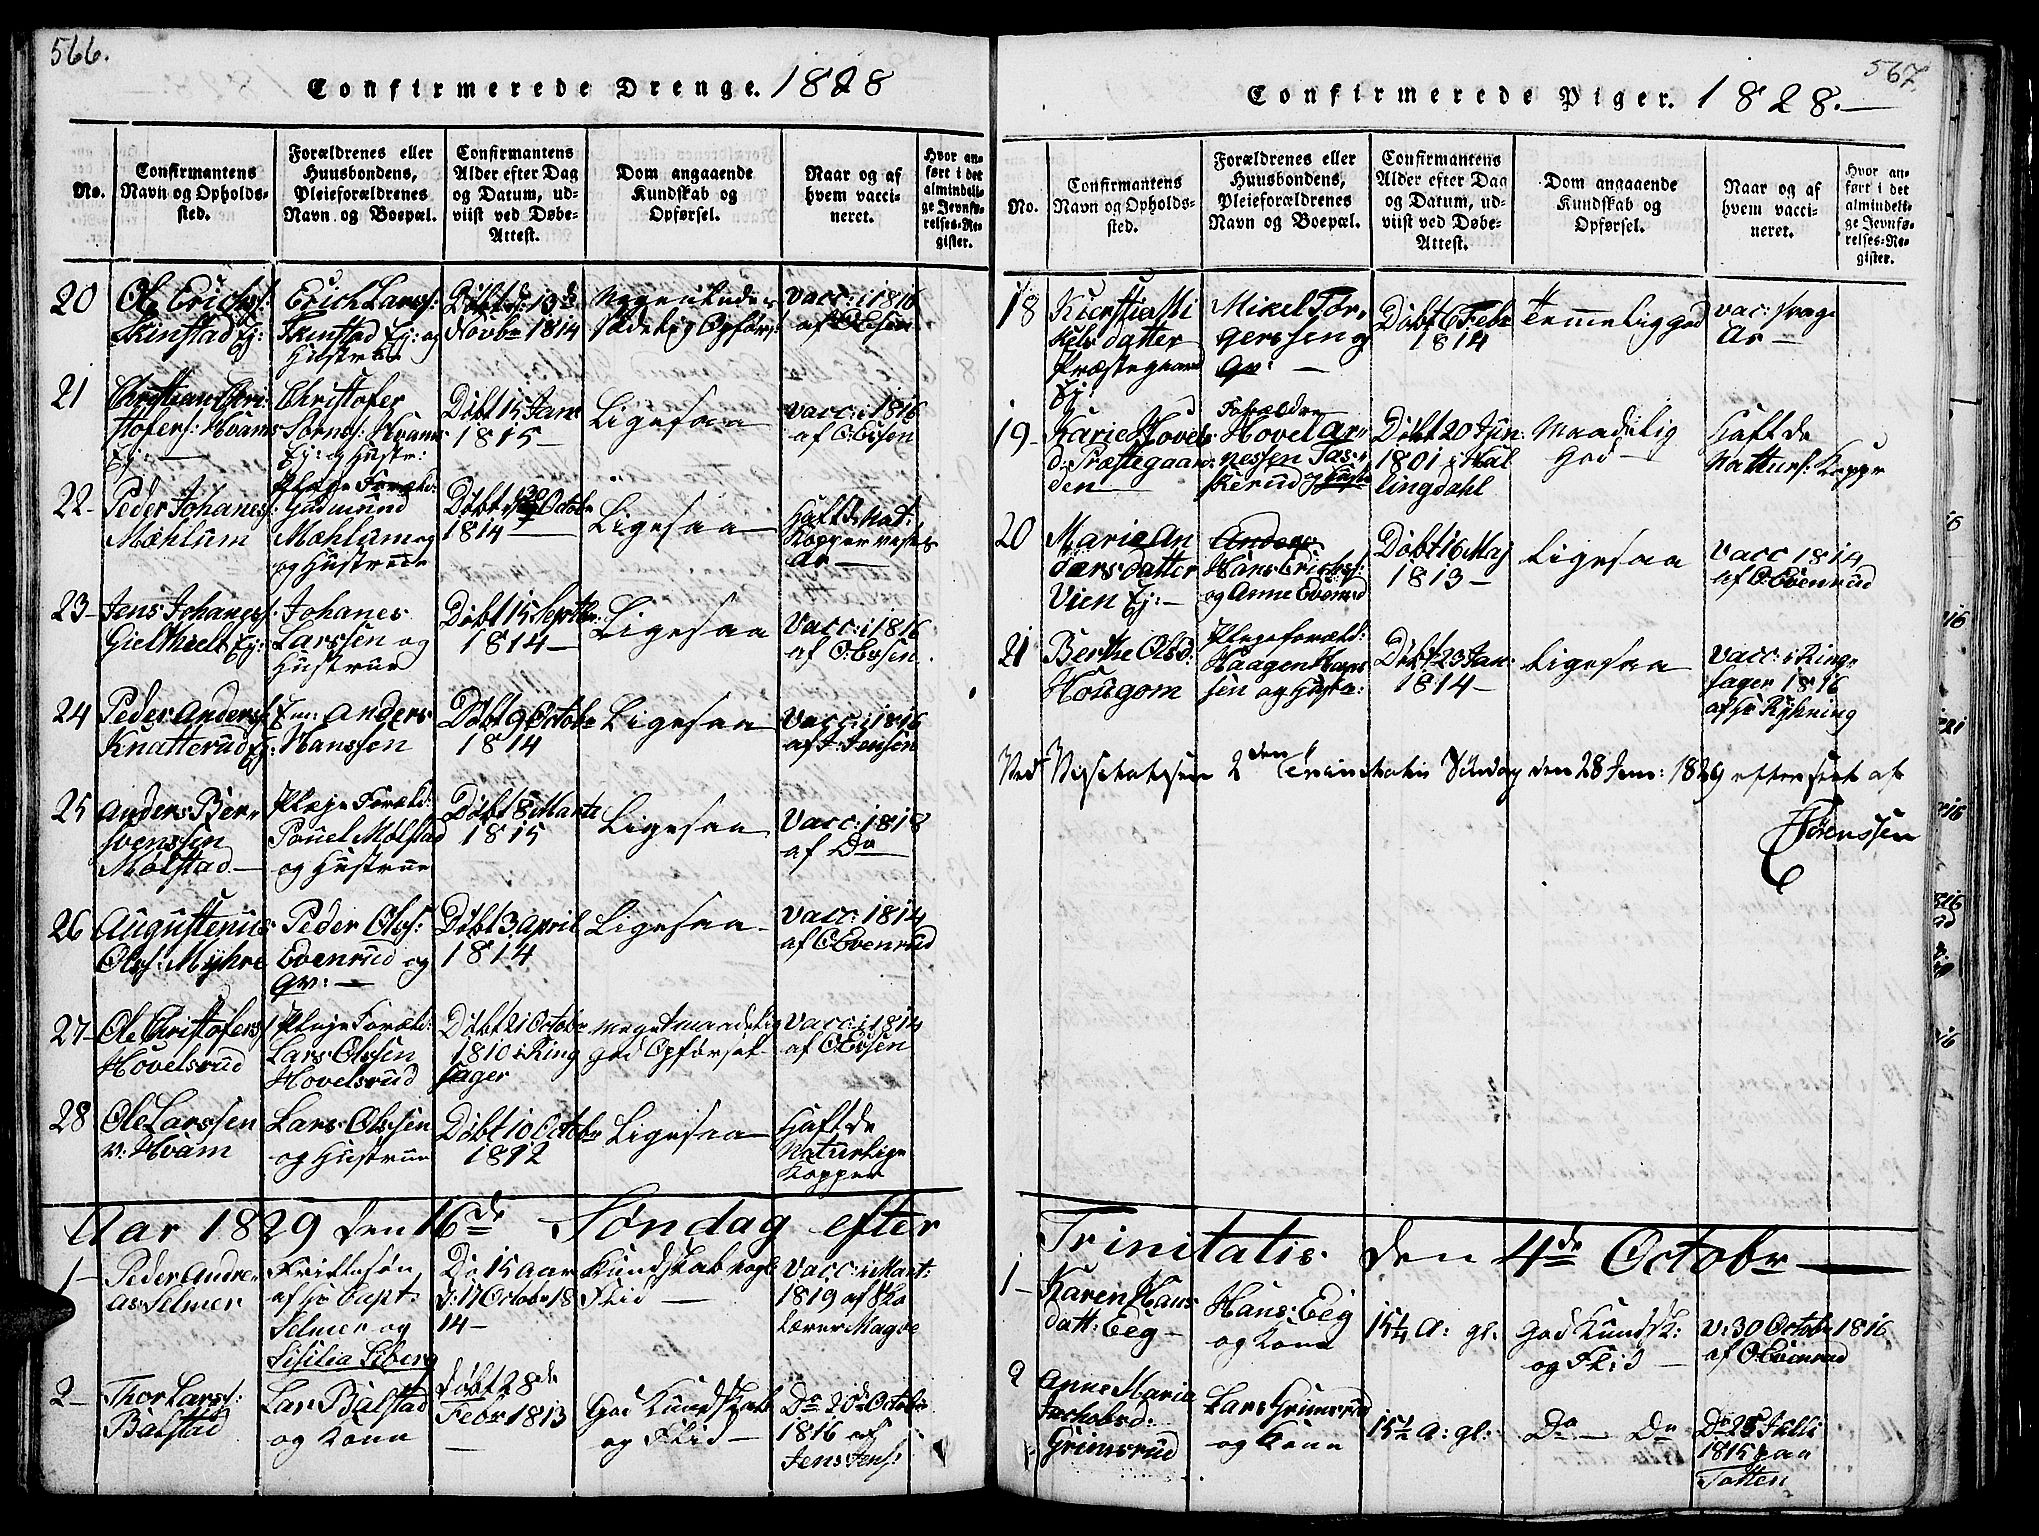 566.
Confirmerede Drenge. 1828
No.
Confirmantens
Navn og Opholds-
sted.
Forældrenes eller
Huusbondens,
Pleieforældrenes
Navn og Boepæl.
Confirmantens
Alder efter Dag
og Datum, ud-
viist ved Døbe-
Attest.
Dom angaaende
Kundskab og
Opførsel.
Naar og af
hvem vacci-
neret.
Hvor an-
ført i det
almindeli-
ge Jevnfø-
relses-Re-
gister.
20
Ole Erichs:
Skinstad Ej:
Erich Larss:
Skinstad Ej: og
Hustrue
Døbt d: 13de
Novbr 1814
Vacc: i 1816
af OEvsen
21
Christian Chri
stofers: Hvams
Ej:
Christofer
Hvams
Ej: og Hustr:
Døbt 15 Janr
1815 -
Ligesaa
Vacc: i 1816
af OEvsen
22-
Peder Johanes:
Mæhlum
Pleje Foræld:
Gudmund
Mæhlum og
og Hustrue
Døbt 30 Octobr
1814 -
Ligesaa
Haft de Nat:
Kopper
Ar -
23-
Jens Johaness:
Ej:
Johanes
Larssen og
Hustrue
Døbt 15 Septbr:
1814 -
Ligesaa
Vacc: i 1816
af OEvsen
24
Peder Anderss:
Knatterud Ej:
Anders
Hanssen
Døbt 9 Octobr
1814
Ligesaa
Vacc: i 1816
af J: Jensen
25
Anders Ber-
svenssen
Mølstad -
Pleje Foræld:
Pouel Mølstad
og Hustrue
Døbt 8 Marts
1815
Ligesaa
Vacc: 1818
af Do
26
Augustenus
Ols: Myhre
Peder Ols:
Evenrud og
Qv: -
Døbt 3 April
1814
Ligesaa -
Vacc: 1814
af OEvenrud
27-
Ole Christofers:
Hovelsrud
Pleje Foræld:
Lars Olssen
Hovelsrud
Døbt 21 Octobr
1810 i Ring
sager
meget maadelig
god Opførsel -
Vacc: i 1814
af OEvsen
28
Ole Larssen
v: Hvam
Lars Olssen
og Hustrue
Døbt 10 Octobr
1812
Ligesaa
Haft de
Naturlige
Kopper
Aar 1829 den 16de Søndag efter
1-
Peder Andre-
as Selmer
af Capt:
Selmer og
Sisilia Siberg
15 aar
d: 17 Octobr 18
14 -
Kundskab og
Flid -
Vacc: i Mart:
1819 af Sko
lærer Magøe
2-
Thor Larss:
Balstad
Lar Balstad
og Kone
Døbt 28de
Febr 1813
-
God Kundskab
og Flid -
Do 20de Octobr
1816 af
Jens Jens:
567.
Confirmerede Piger. 1828. -
No.
Confirmantens
Navn og Opholds-
sted.
Forældrenes eller
Huusbondens,
Pleieforældrenes
Navn og Boepæl.
Confirmantens
Alder efter Dag
og Datum, ud-
viist ved Døbe-
Attest.
Dom angaaende
Kundskab og
Opførsel.
Naar og af
hvem vacci-
neret.
Hvor an-
ført i det
almindeli-
ge Jevnfø-
relses-Re-
gister.
18
Kierstia Mi
kels datter
Præstegaard
Ej:
Mikel Tor-
gerssen og
Qv: -
Døbt 6 Febr
1814
Temmelig god
vac:
Ar -
19-
Karie Hovels
d: Præstegaar
den
Forældre
Hovel Ar-
nessen
og Hustr
Døbt 20 Jun:
1801 i Hal
lingdahl
Maadelig
God -
Haft de
Natturl: Koppr
20
Marie An
ders datter
Vien Ej: -
Hans Erichs:
og Anne Evenrud
Døbt 16 Maj
1813 -
Ligesaa
Vacc 1814
af OEvenrud
21
Berthe Olsd:
Hougom
Plegeforæld:
Haagen Hans
sen og Hustr:
Døbt 23 Jan:
1814 -
Ligesaa
Vacc: i Ring-
sager 1816
af hr Ryhning
Ved Visitatsen 2den Trinitatis Søndag den 28 Juni: 1829 efterseet af
Sørenssen
Trinitatis den 4de Octobr
1-
Karen Hans
datt: Eeg -
Hans: Eeg
og Kone
15 1/4 A: gl:
God Kundsk:
og Flid -
V: 30 Octobr 1816
af OEvenrud
2
Anne Marie
Jachobsd:
Grimsrud
Lars Grimsrud
og Kone
15 1/2 A: gl:
Do - Do
Do 28 Julli
1815 paa
Totten